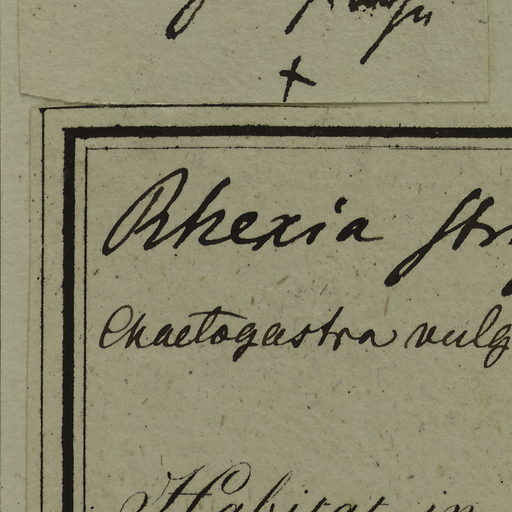 ×
Rhexia str
Chaetogastra vulg
Habitat in